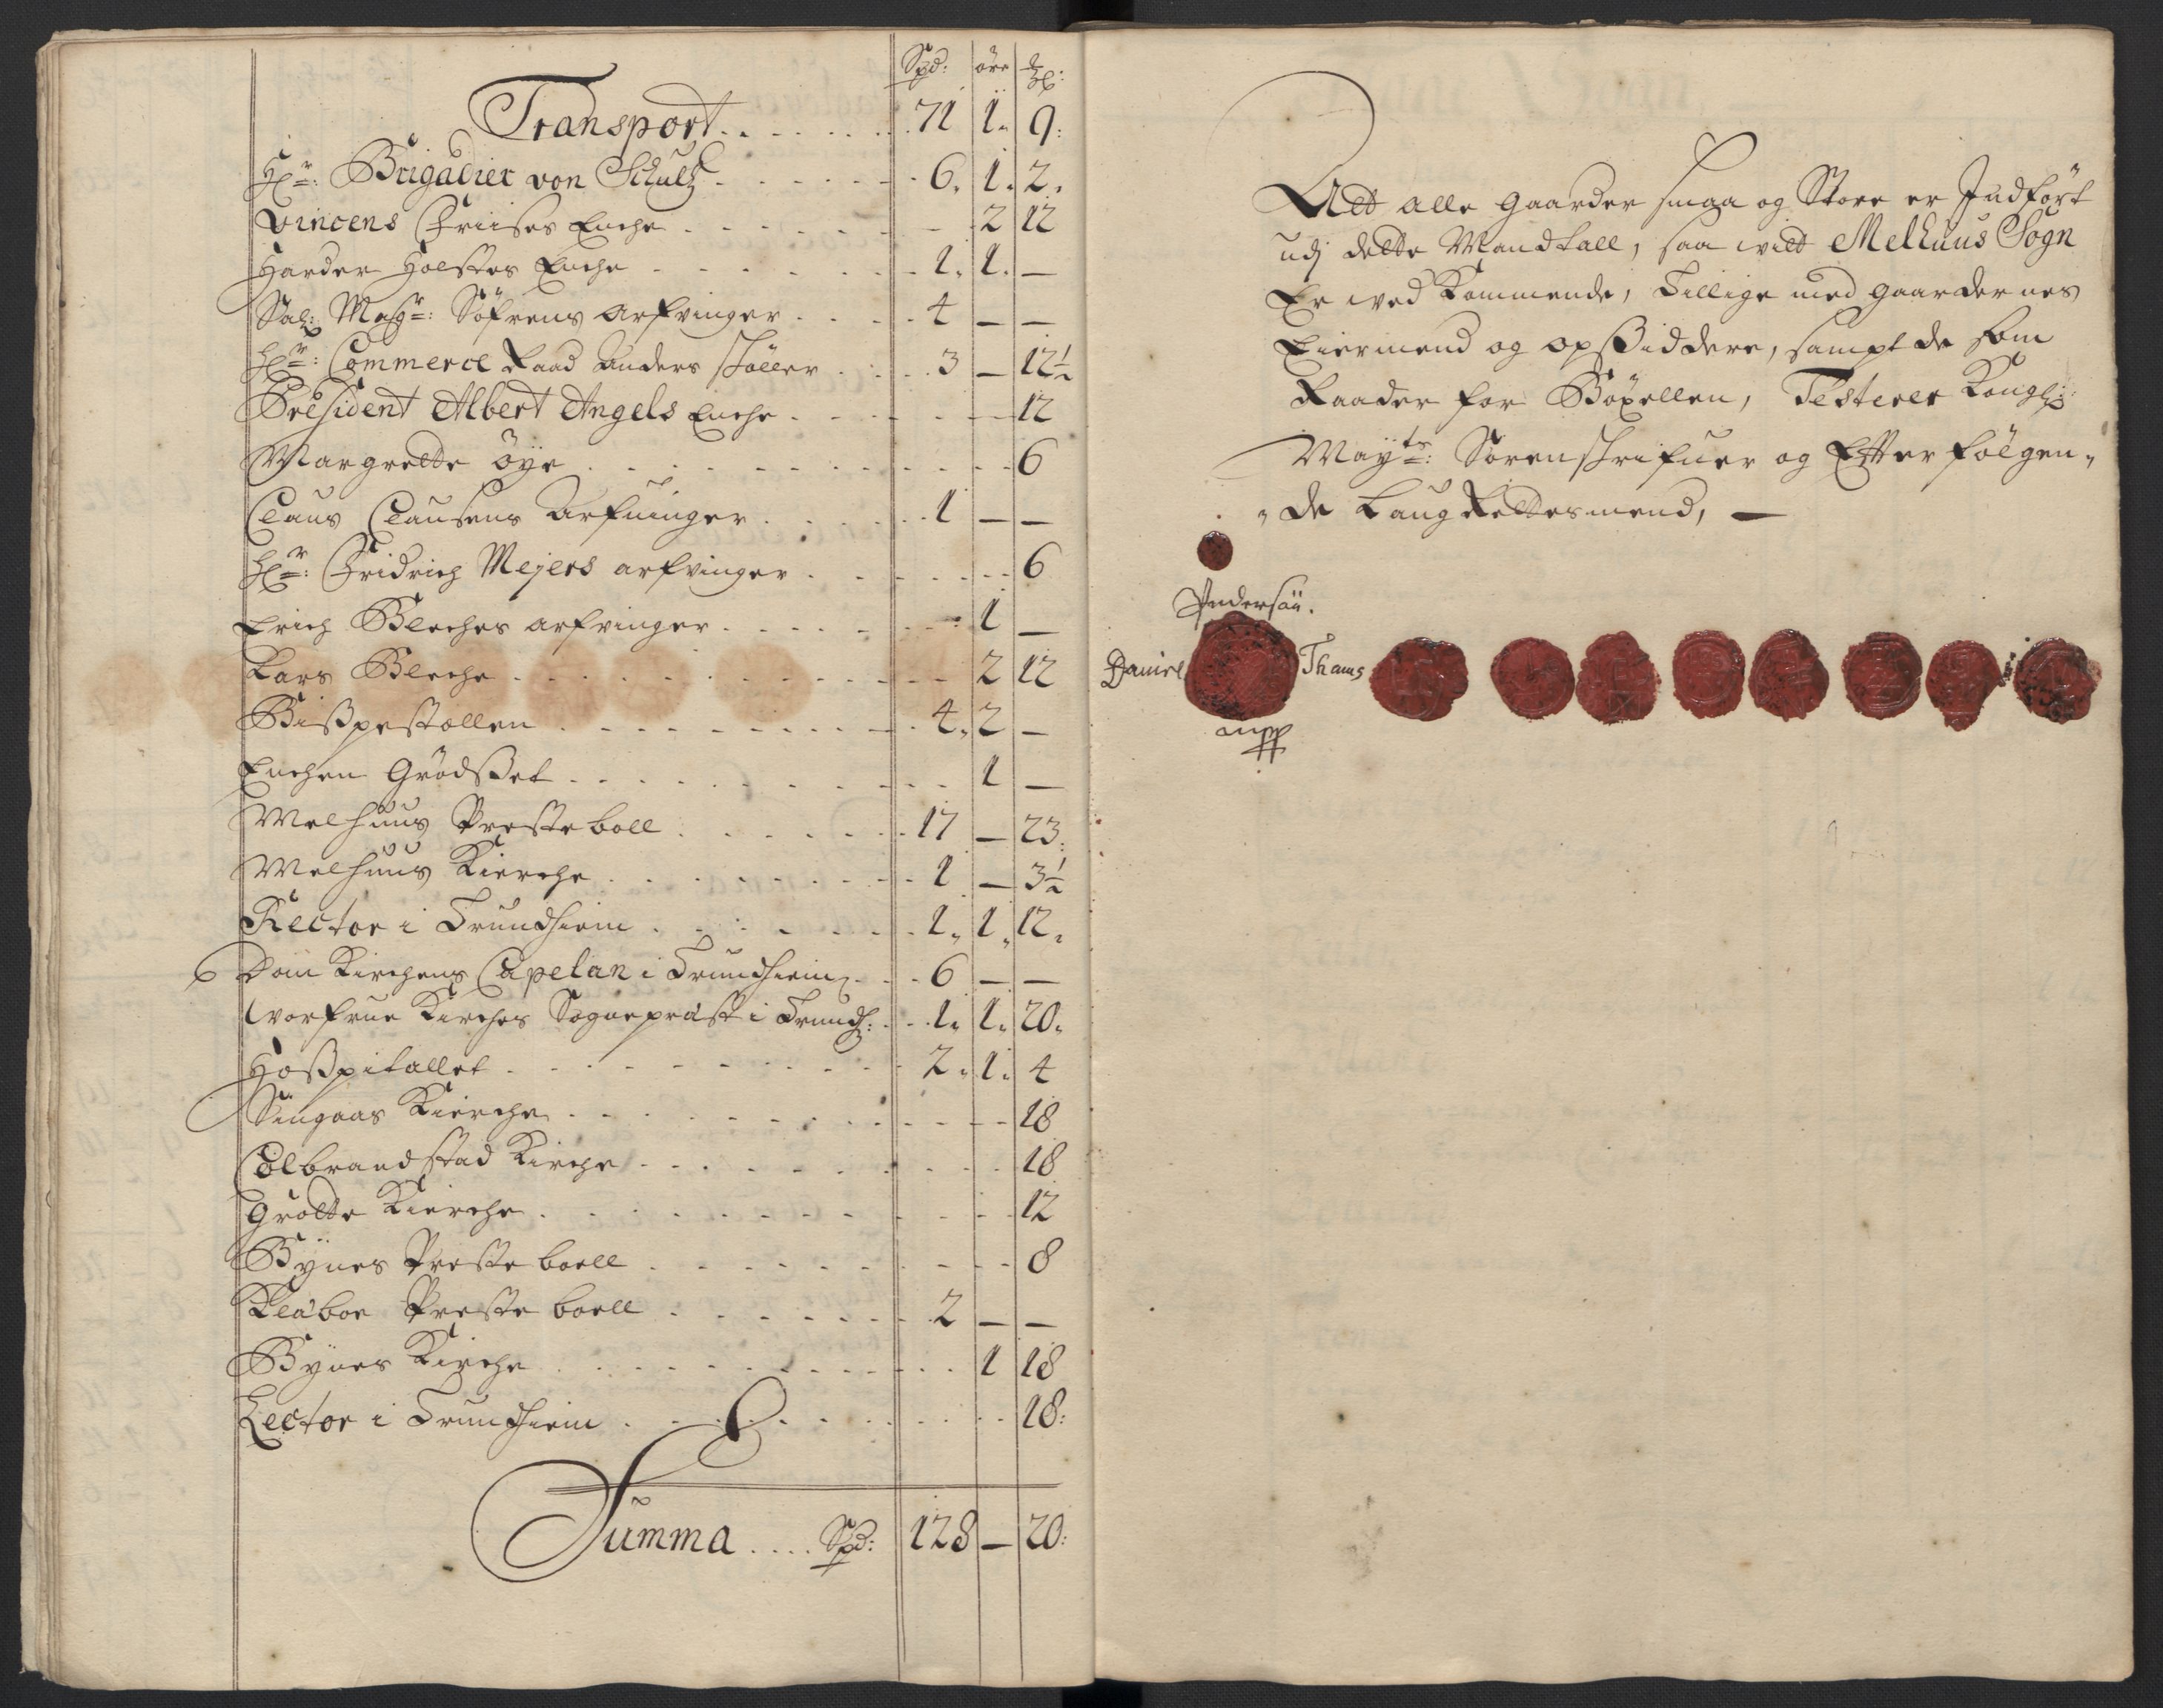 Spd: öre ℔:
Transport . . . . . . . 71 1. 9:
Hr: Brigadier von Schultz . . . . . . 6. 1. 2.
Vincens Friises Enche . . . . . . - 2 12
Harder Holstes Enche . . . . . . 1. 1. —
Sal: Magr: Söfrens Arfvinger . . . . 4 — —
Hr: Commerce Raad Anders Schöller . . . 3 — 12½
Præsident Albert Angels Enche . . . . . — 12
Margrette öÿe . . . . . . . . . . 6
Claus Clausens Arfuinger . . . . . 1 — —
Hr: Fridrich Mejers arfvinger . . . . . . 6
Erich Bleches arfvinger . . . . . . 1 —
Lars Bleche . . . . . . . . . 2 12
Bispestollen . . . . . . . . 4. 2 —
Enchen Grödset . . . . . . . 1 —
Melhuus Presteboll . . . . . . 17 — 23:
Melhuus Kierche . . . . . . . 1 — 3½
Rector i Trundhiem . . . . . . 1. 1. 12.
6 Dom Kirchens Capelan i Trundhiem . . . 6 — —
Vorfrue Kirches Sognepræst i Trundh: . . 1. 1. 20.
Hospitallet . . . . . . . . 2. 1. 4
Singaas Kierche . . . . . . . . 18
Colbrandstad Kirche . . . . . . . 18
Grötte Kierche . . . . . . . . 12
Bÿnes Preste boell . . . . . . . 8
Klæboe Preste boell . . . . . . 2 — —
Bÿnes Kirche . . . . . . . . 1 18
Lector i Trundhiem . . . . . . . . 18:
Summa . . . . Spd: 128 — 20:
Att alle gaarder smaa og Store er Indfört
udj dette Mandtall, saa vitt Melhuus Sogn
Er ved Kommende, Tillige med gaardernes
Eiermend og opsiddere, sampt de som
Raader for Böxellen, Testerer Kongl:
Mayts: Sorenskrifuer og Efterfölgen„
„de Laug Rettesmend, —
Andersøn.
Daniel Thams
mpp